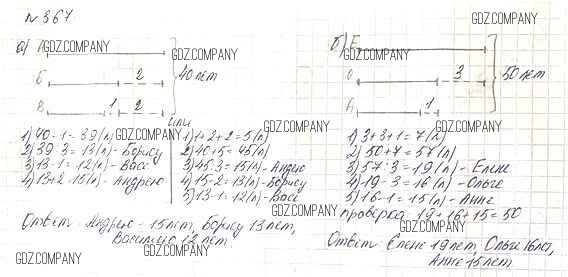 № 367
а) А
Б 2 40 лет
В 1 2
1) 40-1=39(л)
2) 39:3=13(л)-Борису
3) 13-1=12(л)-Васе
4) 13+2=15(л)-Андрею
или
1) 1+2+2=5(л)
2) 40+5=45(л)
3) 45:3=15(л)-Андрею
4) 15-2=13(л)-Борису
5) 13-1=12(л)-Васе
Ответ: Андрею - 15 лет, Борису 13 лет,
Василию 12 лет.
б) Е
О 3 50 лет
А 1
1) 3+3+1=7(л)
2) 50+7=57(л)
3) 57:3=19(л)-Елене
4) 19-3=16(л)-Ольге
5) 16-1=15(л)-Анне
Проверка 19+16+15=50
Ответ: Елене 19 лет, Ольге 16 лет,
Анне 15 лет
GDZ.COMPANY
GDZ.COMPANY
GDZ.COMPANY
GDZ.COMPANY
GDZ.COMPANY
GDZ.COMPANY
GDZ.COMPANY
GDZ.COMPANY
GDZ.COMPANY
GDZ.COMPANY
GDZ.COMPANY
GDZ.COMPANY
GDZ.COMPANY
GDZ.COMPANY